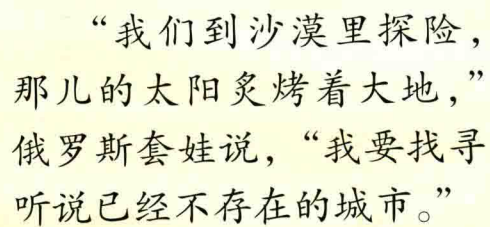 “我们到沙漠里探险，
那儿的太阳炙烤着大地，”
俄罗斯套娃说，“我要找寻
听说已经不存在的城市。”